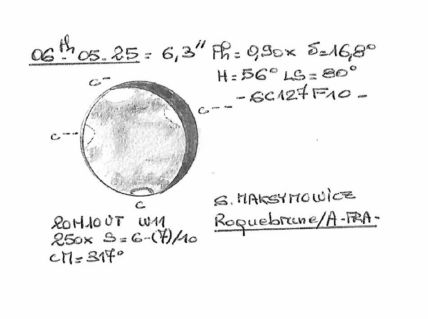 06th-05-25 = 6,3" Ph = 0,90x δ=16,8°
H = 56° LS = 80°
- SC127F10 -
C -
C ---
C ---
C
20H10UT W11
250x S = 6-(7)/10
CM = 317°
S. MAKSYMOWICZ
Roquebrune/A-FRA-